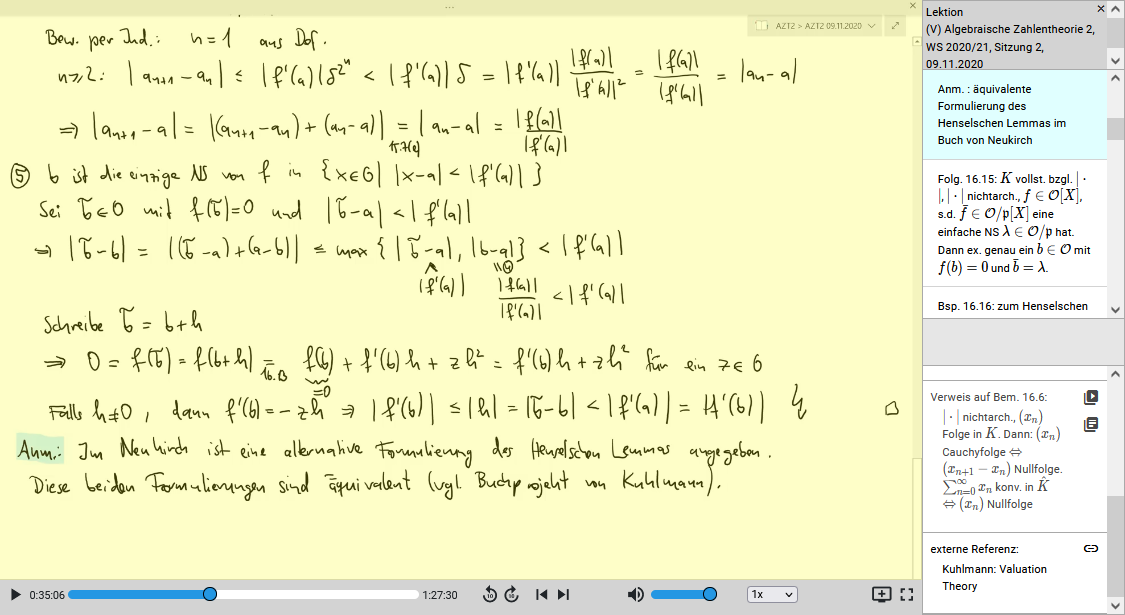 AZT2 > AZT2 09.11.2020
Bew. per Ind.: n=1 aus Def.
n≥2: |aₙ₊₁ - aₙ| ≤ |f'(a)| δ^{2^n} < |f'(a)| δ = |f'(a)| |f(a)|/|f'(a)|² = |f(a)|/|f'(a)| = |aₙ - a|
⇒ |aₙ₊₁ - a| = |(aₙ₊₁ - aₙ) + (aₙ - a)| = |aₙ - a| = |f(a)|/|f'(a)|
⑤ b ist die einzige NS von f in {x∈O | |x-a| < |f'(a)|}
Sei b̃∈O mit f(b̃)=0 und |b̃-a| < |f'(a)|
⇒ |b̃-b| = |(b̃-a)+(a-b)| ≤ max{|b̃-a|, |b-a|} < |f'(a)|
∧ |f'(a)| || ④ |f(a)|/|f'(a)| < |f'(a)|
Schreibe b̃ = b+h
⇒ 0 = f(b̃) = f(b+h) = f(b) + f'(b)h + zh² = f'(b)h + zh² für ein z∈O
16.13 =0
Falls h≠0, dann f'(b) = -zh ⇒ |f'(b)| ≤ |h| = |b̃-b| < |f'(a)| = |f'(b)| ↯ □
Anm.: Im Neukirch ist eine alternative Formulierung des Henselschen Lemmas angegeben.
Diese beiden Formulierungen sind äquivalent (vgl. Buchprojekt von Kuhlmann).
0:35:06
1:27:30
10
10
1x
Lektion
(V) Algebraische Zahlentheorie 2,
WS 2020/21, Sitzung 2,
09.11.2020
Anm. : äquivalente
Formulierung des
Henselschen Lemmas im
Buch von Neukirch
Folg. 16.15: K vollst. bzgl. | ·
|, | · | nichtarch., f ∈ O[X],
s.d. f̄ ∈ O/p[X] eine
einfache NS λ ∈ O/p hat.
Dann ex. genau ein b ∈ O mit
f(b) = 0 und b̄ = λ.
Bsp. 16.16: zum Henselschen
Verweis auf Bem. 16.6:
| · | nichtarch., (xₙ)
Folge in K. Dann: (xₙ)
Cauchyfolge ⇔
(xₙ₊₁ − xₙ) Nullfolge.
∑_{n=0}^{∞} xₙ konv. in K̂
⇔ (xₙ) Nullfolge
externe Referenz:
Kuhlmann: Valuation
Theory